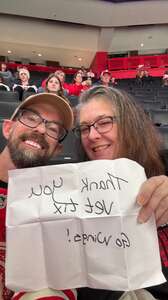 Thank you
Vet tix
Go Wings!